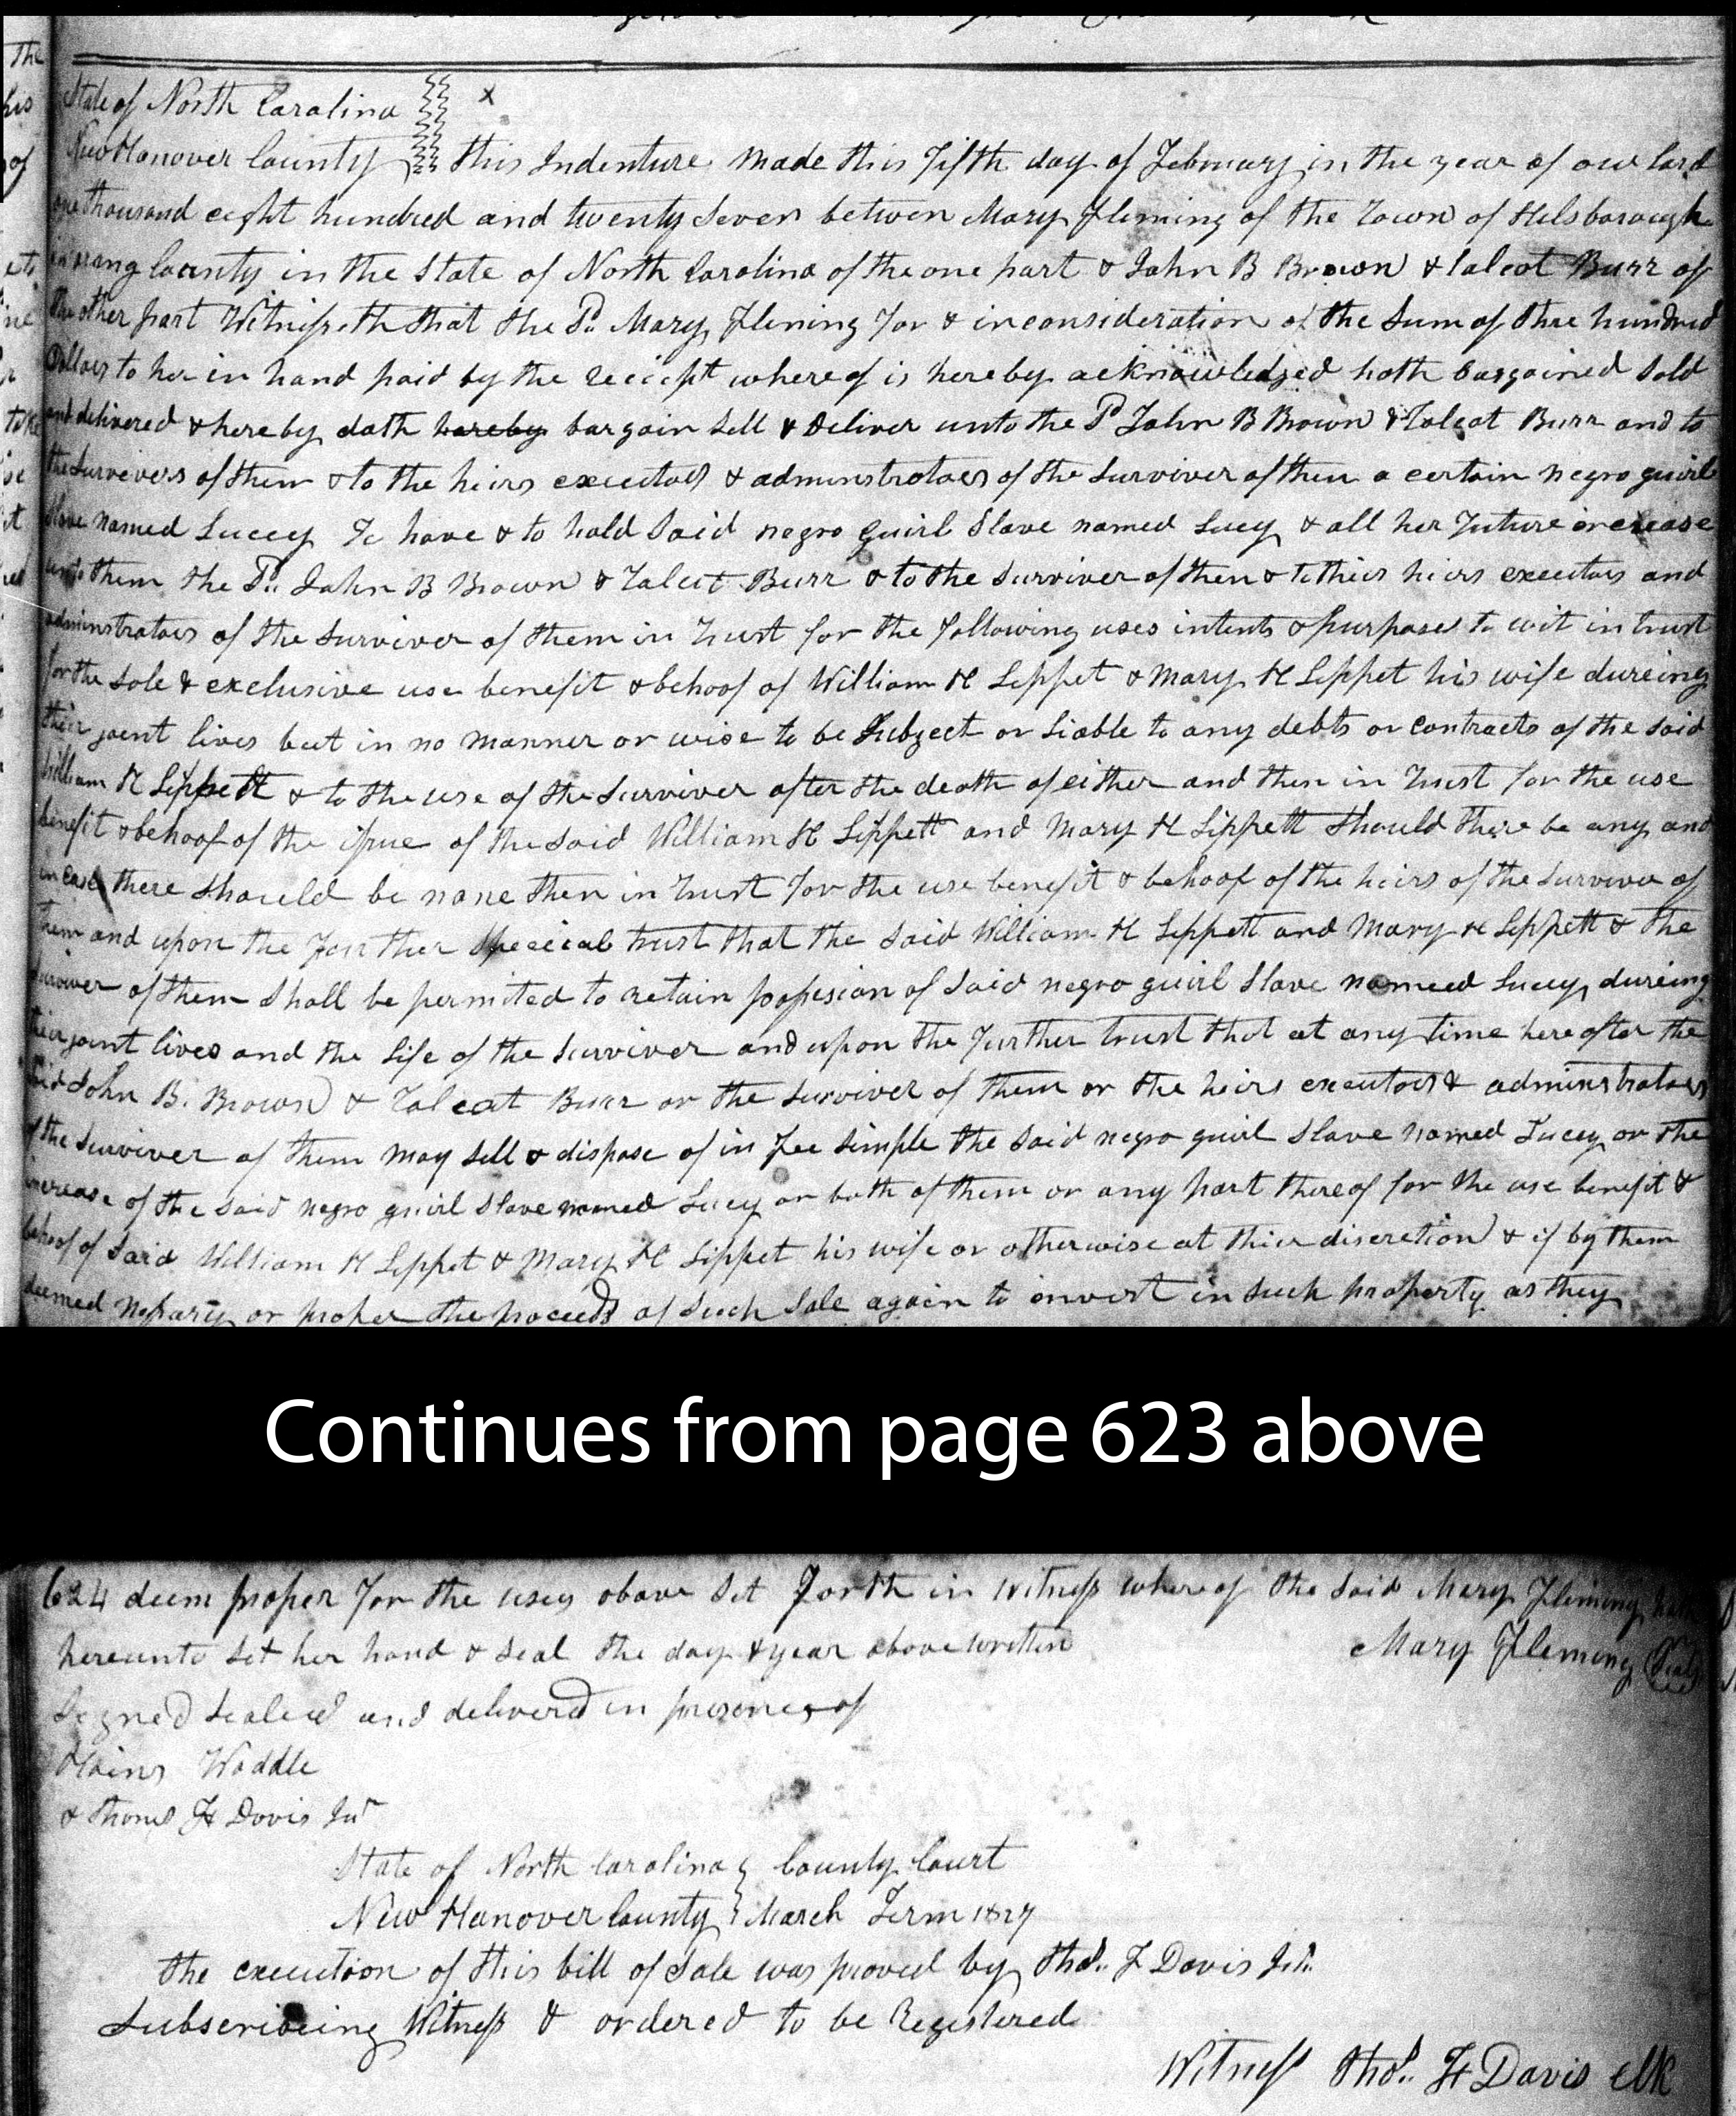 The
his
of
State of North Carolina x
New Hanover County this Indenture made this Fifth day of February in the year of our lord
one thousand eight hundred and twenty Seven betwen Mary Fleming of the Town of Hilsborough
in orang County in the State of North Carolina of the one part & John B Brown & Talcot Burr of
the other part Witnesseth that the Sd. Mary Fleming for & in consideration of the Sum of thre hundred
Dollars to her in hand paid by the receipt where of is hereby acknowledged hath bargained Sold
and delivered & hereby doth hereby bargain Sell & Deliver unto the Sd John B Brown & Talcot Burr and to
the Survivers of them & to the heirs executors & adminstrators of the Surviver of them a certain negro guirl
Slave named Lucey To have & to hold Said negro guirl Slave named Lucy & all her Future increase
unto them the Sd. John B Brown & Talcot Burr & to the Surviver of them & to their heirs executors and
adminstrators of the Surviver of them in Trust for the following uses intents & purposes to wit in trust
for the Sole & exclusive use benefit & behoof of William H Lippet & Mary H Lippet his wife dureing
their joint lives but in no manner or wise to be Subject or liable to any debts or contracts of the Said
William H Lippett & to the use of the Surviver after the death of either and then in Trust for the use
benefit & behoof of the issue of the Said William H Lippett and Mary H Lippett Should there be any and
in case there Should be none then in Trust for the use benefit & behoof of the heirs of the Surviver of
them and upon the Further Special trust that the Said William H Lippett and Mary H Lippett & the
Surviver of them Shall be permited to retain possesion of Said negro guirl Slave named Lucy dureing
their joint lives and the life of the Surviver and upon the Further trust that at any time here after the
Said John B. Brown & Talcot Burr or the Surviver of them or the heirs executors & adminstrators
of the Surviver of them may Sell & dispose of in Fee Simple the Said negro guirl Slave named Lucey or the
increase of the Said negro guirl Slave named Lucy or both of them or any part thereof for the use benefit &
behoof of Said William H Lippet & Mary H Lippet his wife or otherwise at thier discretion & if by them
deemed nessary or proper the proceeds of Such Sale again to invest in Such property as they
Continues from page 623 above
624 deem proper For the uses above Set Forth in Witness where of the Said Mary Fleming hath
hereunto Set her hand & Seal the day & year above written Mary Fleming (Seal)
Signed Sealed and deliverd in presence of
Hains Waddle
& Thoms F Davis Junr
State of North Carolina County Court
New Hanover County March Term 1827
the execution of this bill of Sale was proved by Thos. F Davis Jr.
Subscribeing Witness & ordered to be Registered
Witness Thos. F Davis Clk